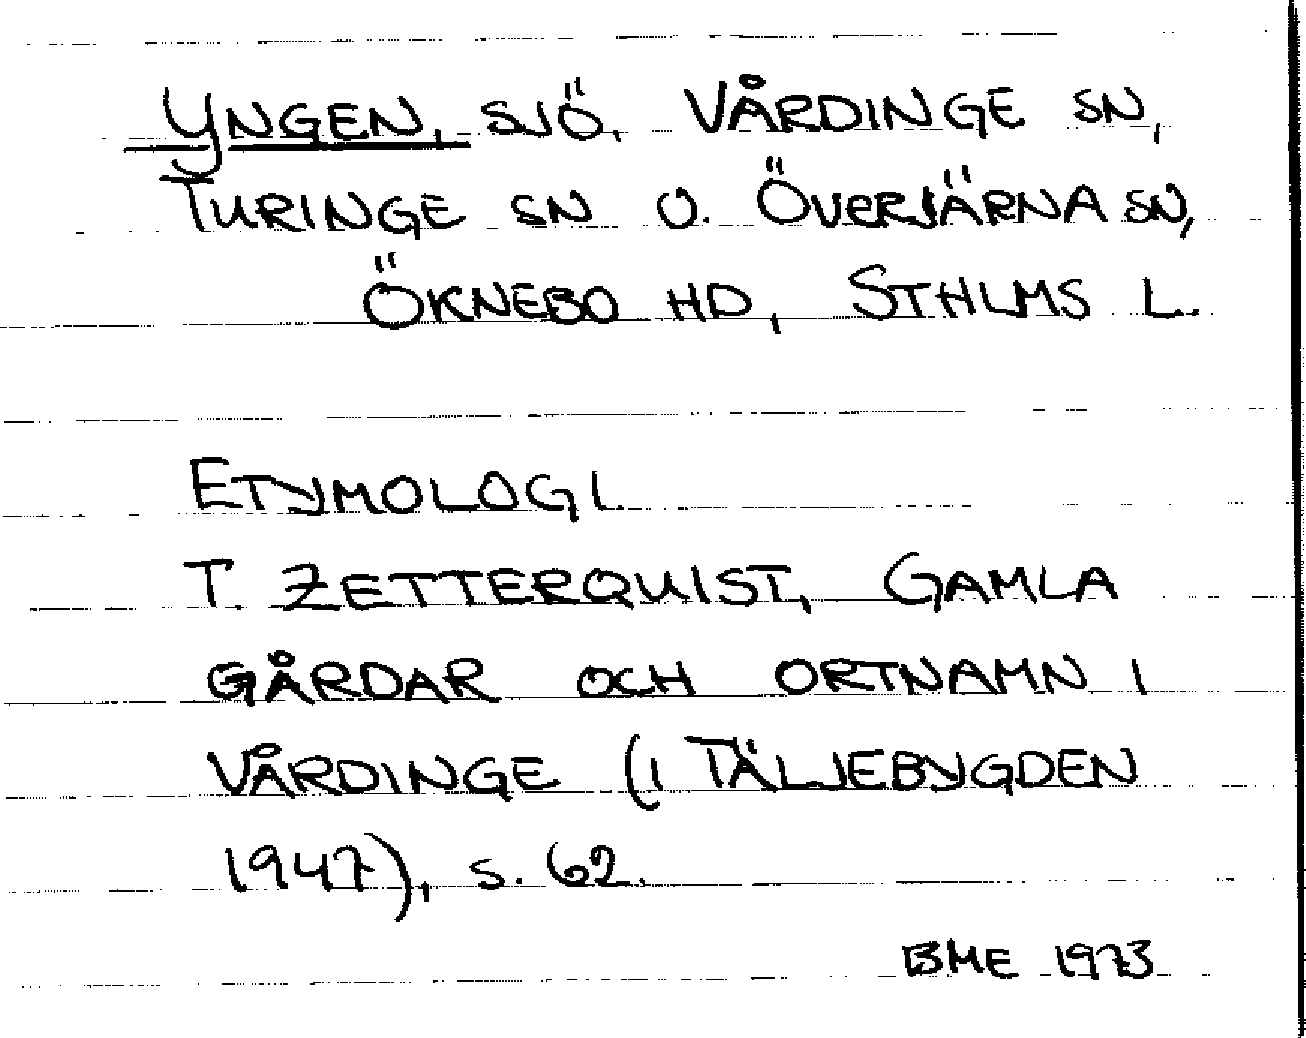 YNGEN, SJÖ, VÅRDINGE SN,
TURINGE SN O. ÖVERJÄRNA SN,
ÖKNEBO HD, STHLMS L.
ETYMOLOGI.
T. ZETTERQUIST, GAMLA
GÅRDAR OCH ORTNAMN I
VÅRDINGE (I TÄLJEBYGDEN
1947), S. 62.
BME 1973